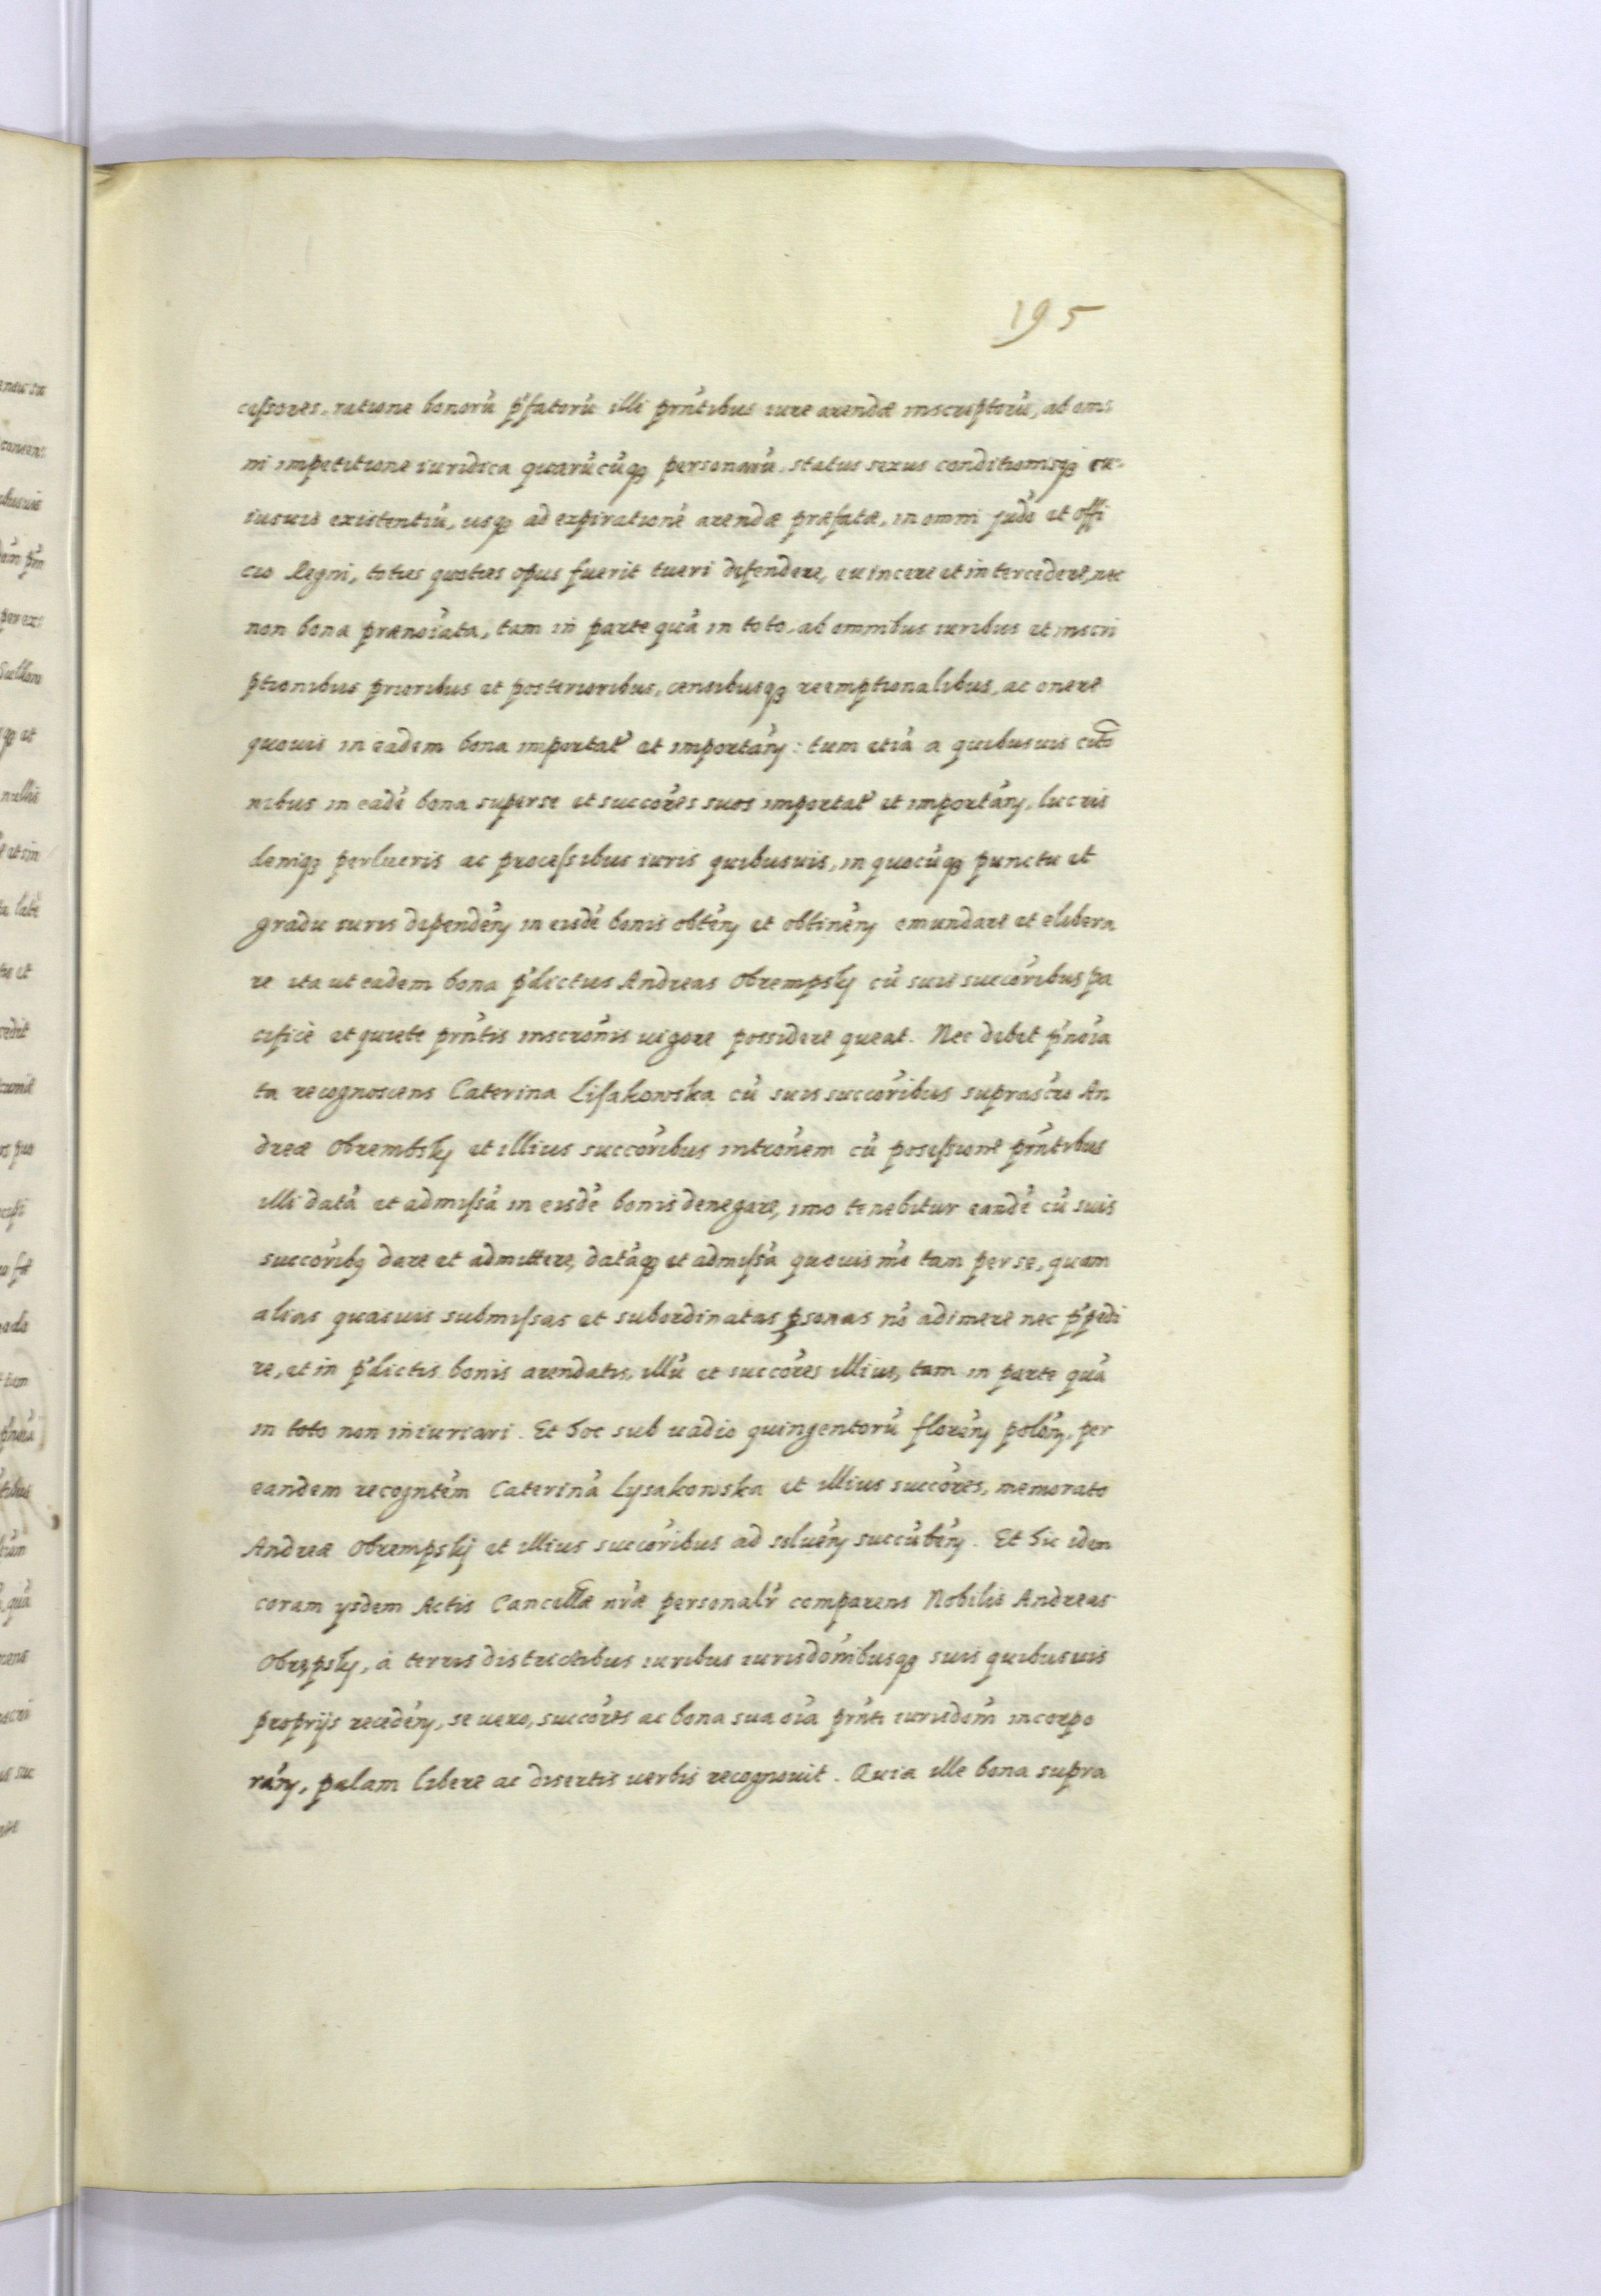 195
cessores, ratione bonorũ p̃fatorũ illi prñtibus iure arendæ inscriptorũ, ab om:
ni impetitione iuridica quarũcũq̃ personarũ, status sexus conditionisq̃ cu:
iusuis existentiũ, usq̃ ad expirationẽ arendæ præfatæ, in omni judõ et offi
cio Regni, toties quoties opus fuerit tueri defendere, euincere et intercedere, nec
non bona prænoĩata, tam in parte quã in toto, ab omnibus iuribus et inscri
ptionibus prioribus et posterioribus, censibusq̃ reemptionalibus, ac onere
quouis in eadem bona importat̃ et importañ: tum etiã a quibusuis citõ
nibus in eadẽ bona super se et succõres suos importat̃ et importañ, lucris
deniq̃ perlucris ac processibus iuris quibusuis, in quocũq̃ punctu et
gradu iuris dependeñ in eisdẽ bonis obteñ et obtineñ emundare et elibera
re ita ut eadem bona p̃dictus Andreas Obrempsky cũ suis succõribus pa
cificè et quiete prñtis inscrõnis uigore possidere queat. Nec debet p̃noĩa
ta recognoscens Caterina Lisakowska cũ suis succõribus suprascro An
dreæ Obrembsky et illius succõribus intrõnem cũ possessione prñtibus
illi datã et admissã in eisdẽ bonis denegare, imo tenebitur eandẽ cũ suis
succõribq dare et admittere, datãq̃ et admissã quouis mõ tam per se, quam
alias quasuis submissas et subordinatas p̱sonas nõ adimere nec p̃pedi
re, et in p̃dictis bonis arendatis, illũ et succõres illius, tam in parte quã
in toto non iniuriari. Et hoc sub uadio quingentorũ floreñ poloñ, per
eandem recogntẽm Caterinã Lysakowska et illius succõres, memorato
Andreæ Obrempskij et illius succõribus ad solueñ succũbeñ. Et hic idem
coram ysdem Actis Cancellæ nr̃æ personalr̃ comparens Nobilis Andreas
Obrępsky, à terris districtibus iuribus iurisdõnibusq̃ suis quibusuis
proprijs recedeñ, se uero, succõres ac bona sua oĩa prñti iurisdõni incorpo
rañ, palam libere ac disertis uerbis recognouit. Quia ille bona supra